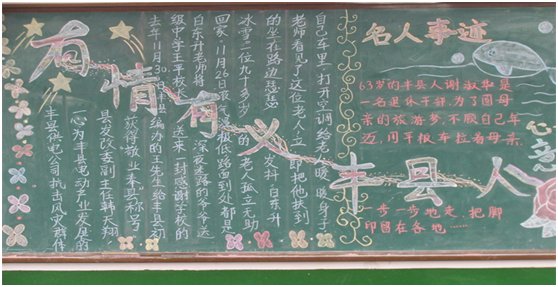 有情有义丰县人
丰县供电公司抗击风灾群体
心为丰县电动产业发展的
县发改委副主任韩天翔,
获得“敬业奉献”称号
去年11月30日 的王先生给丰县初
级中学王 校长送来一封感谢学校的
白东升老师将 深夜迷路的爷爷送
回家。11月26日 气 极低,路面到处都是
冰雪,一位九十多岁的老人孤立无助
的坐在路边瑟瑟发抖,白东升
老师看见了这位老人,立即把他扶到
自己车里,打开空调给老人暖暖身子
名人事迹
63岁的丰县人谢淑华是
一名退休干部,为了圆母
亲的旅游梦,不顾自己年
迈,用平板车拉着母亲,
一步一步地走,把脚
印留在各地……
心意